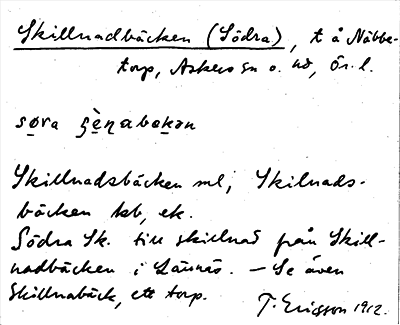 Skillnadbäcken (Södra), t å Näbbe-
torp, Askers sn o. hd, Ör. l.
Skillnadsbäcken ml; Skilnads-
bäcken kb, ek.
Södra Sk. till skillnad från Skill-
nadbäcken i Lännäs. – Se även
Skillnabäck, ett torp.
T. Ericsson 1912.